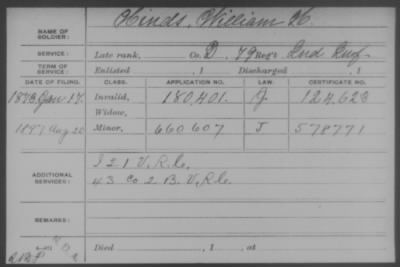 NAME OF SOLDIER: Hinds, William H.
SERVICE: Late rank, Co. D, 79 Reg't Ind. Inf.
TERM OF SERVICE: Enlisted , 1 Discharged , 1
DATE OF FILING. CLASS. APPLICATION NO. LAW. CERTIFICATE NO.
Jan 17. Invalid, 180,401. 124,623
Widow,
1897 Aug 20 Minor, 660607 J 578771
ADDITIONAL SERVICES: I 21 V.R.C.
43 Co 2 B. V.R.C.
REMARKS:
Died , 1 , at